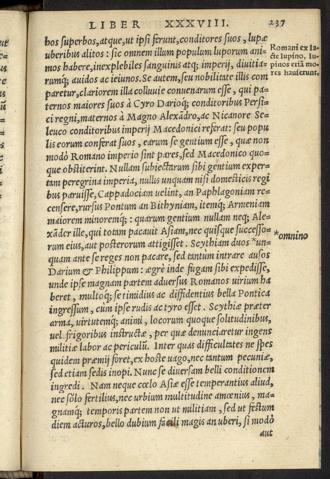 LIBER XXXVIII. 237
bos superbos, atque, ut ipsi ferunt, conditores suos, lupæ
uberibus alitos : sic omnem illum populum luporum ani-
mos habere, inexplebiles sanguinis atq; imperij, divitia-
rumq; avidos ac ieiunos. Se autem, seu nobilitate illis com
paretur, clariorem illa colluvie convenarum esse, qui pa-
ternos maiores suos à Cyro Darioq; conditoribus Persi-
ci regni, maternos à Magno Alexãdro, ac Nicanore Se-
leuco conditoribus imperij Macedonici referat: seu popu
lis eorum conferat suos , earum se gentium esse, quæ non
modò Romano imperio sint pares, sed Macedonico quo-
que obstiterint. Nullam subiectarum sibi gentium exper-
tam peregrina imperia, nullis unquam nisi domesticis regi
bus paruisse, Cappadociam velint, an Paphlagoniam re-
censere, rursus Pontum an Bithyniam, itemq; Armeniam
maiorem minoremq; : quarum gentium nullam neq; Ale-
xãder ille, qui totam pacavit Asiam, nec quisque successo-
rum eius, aut posterorum attigisset. Scythiam duos *un-
quam ante se reges non pacare, sed tantùm intrare ausos
Darium & Philippum : ægrè inde fugam sibi expedisse,
unde ipse magnam partem adversus Romanos virium ha
beret , multoq; se timidius ac diffidentius bella Pontica
ingressum, cum ipse rudis ac tyro esset . Scythiæ præter
arma, virtutemq; animi, locorum quoque solitudinibus,
vel frigoribus instructæ , per quæ denunciaretur ingens
militiæ labor ac periculũ. Inter quas difficultates ne spes
quidem præmij foret, ex hoste vago, nec tantum pecuniæ,
sed etiam sedis inopi. Nunc se diversam belli conditionem
ingredi . Nam neque cœlo Asiæ esse temperantius aliud,
nec sōlo fertilius, nec urbium multitudine amœnius , ma-
gnamq; temporis partem non ut militiam , sed ut festum
diem acturos, bello dubium facili magis an uberi, si modò
aut
Romani ex la-
cte lupino, lu-
pinos etiã mo-
res hauserunt.
*omnino